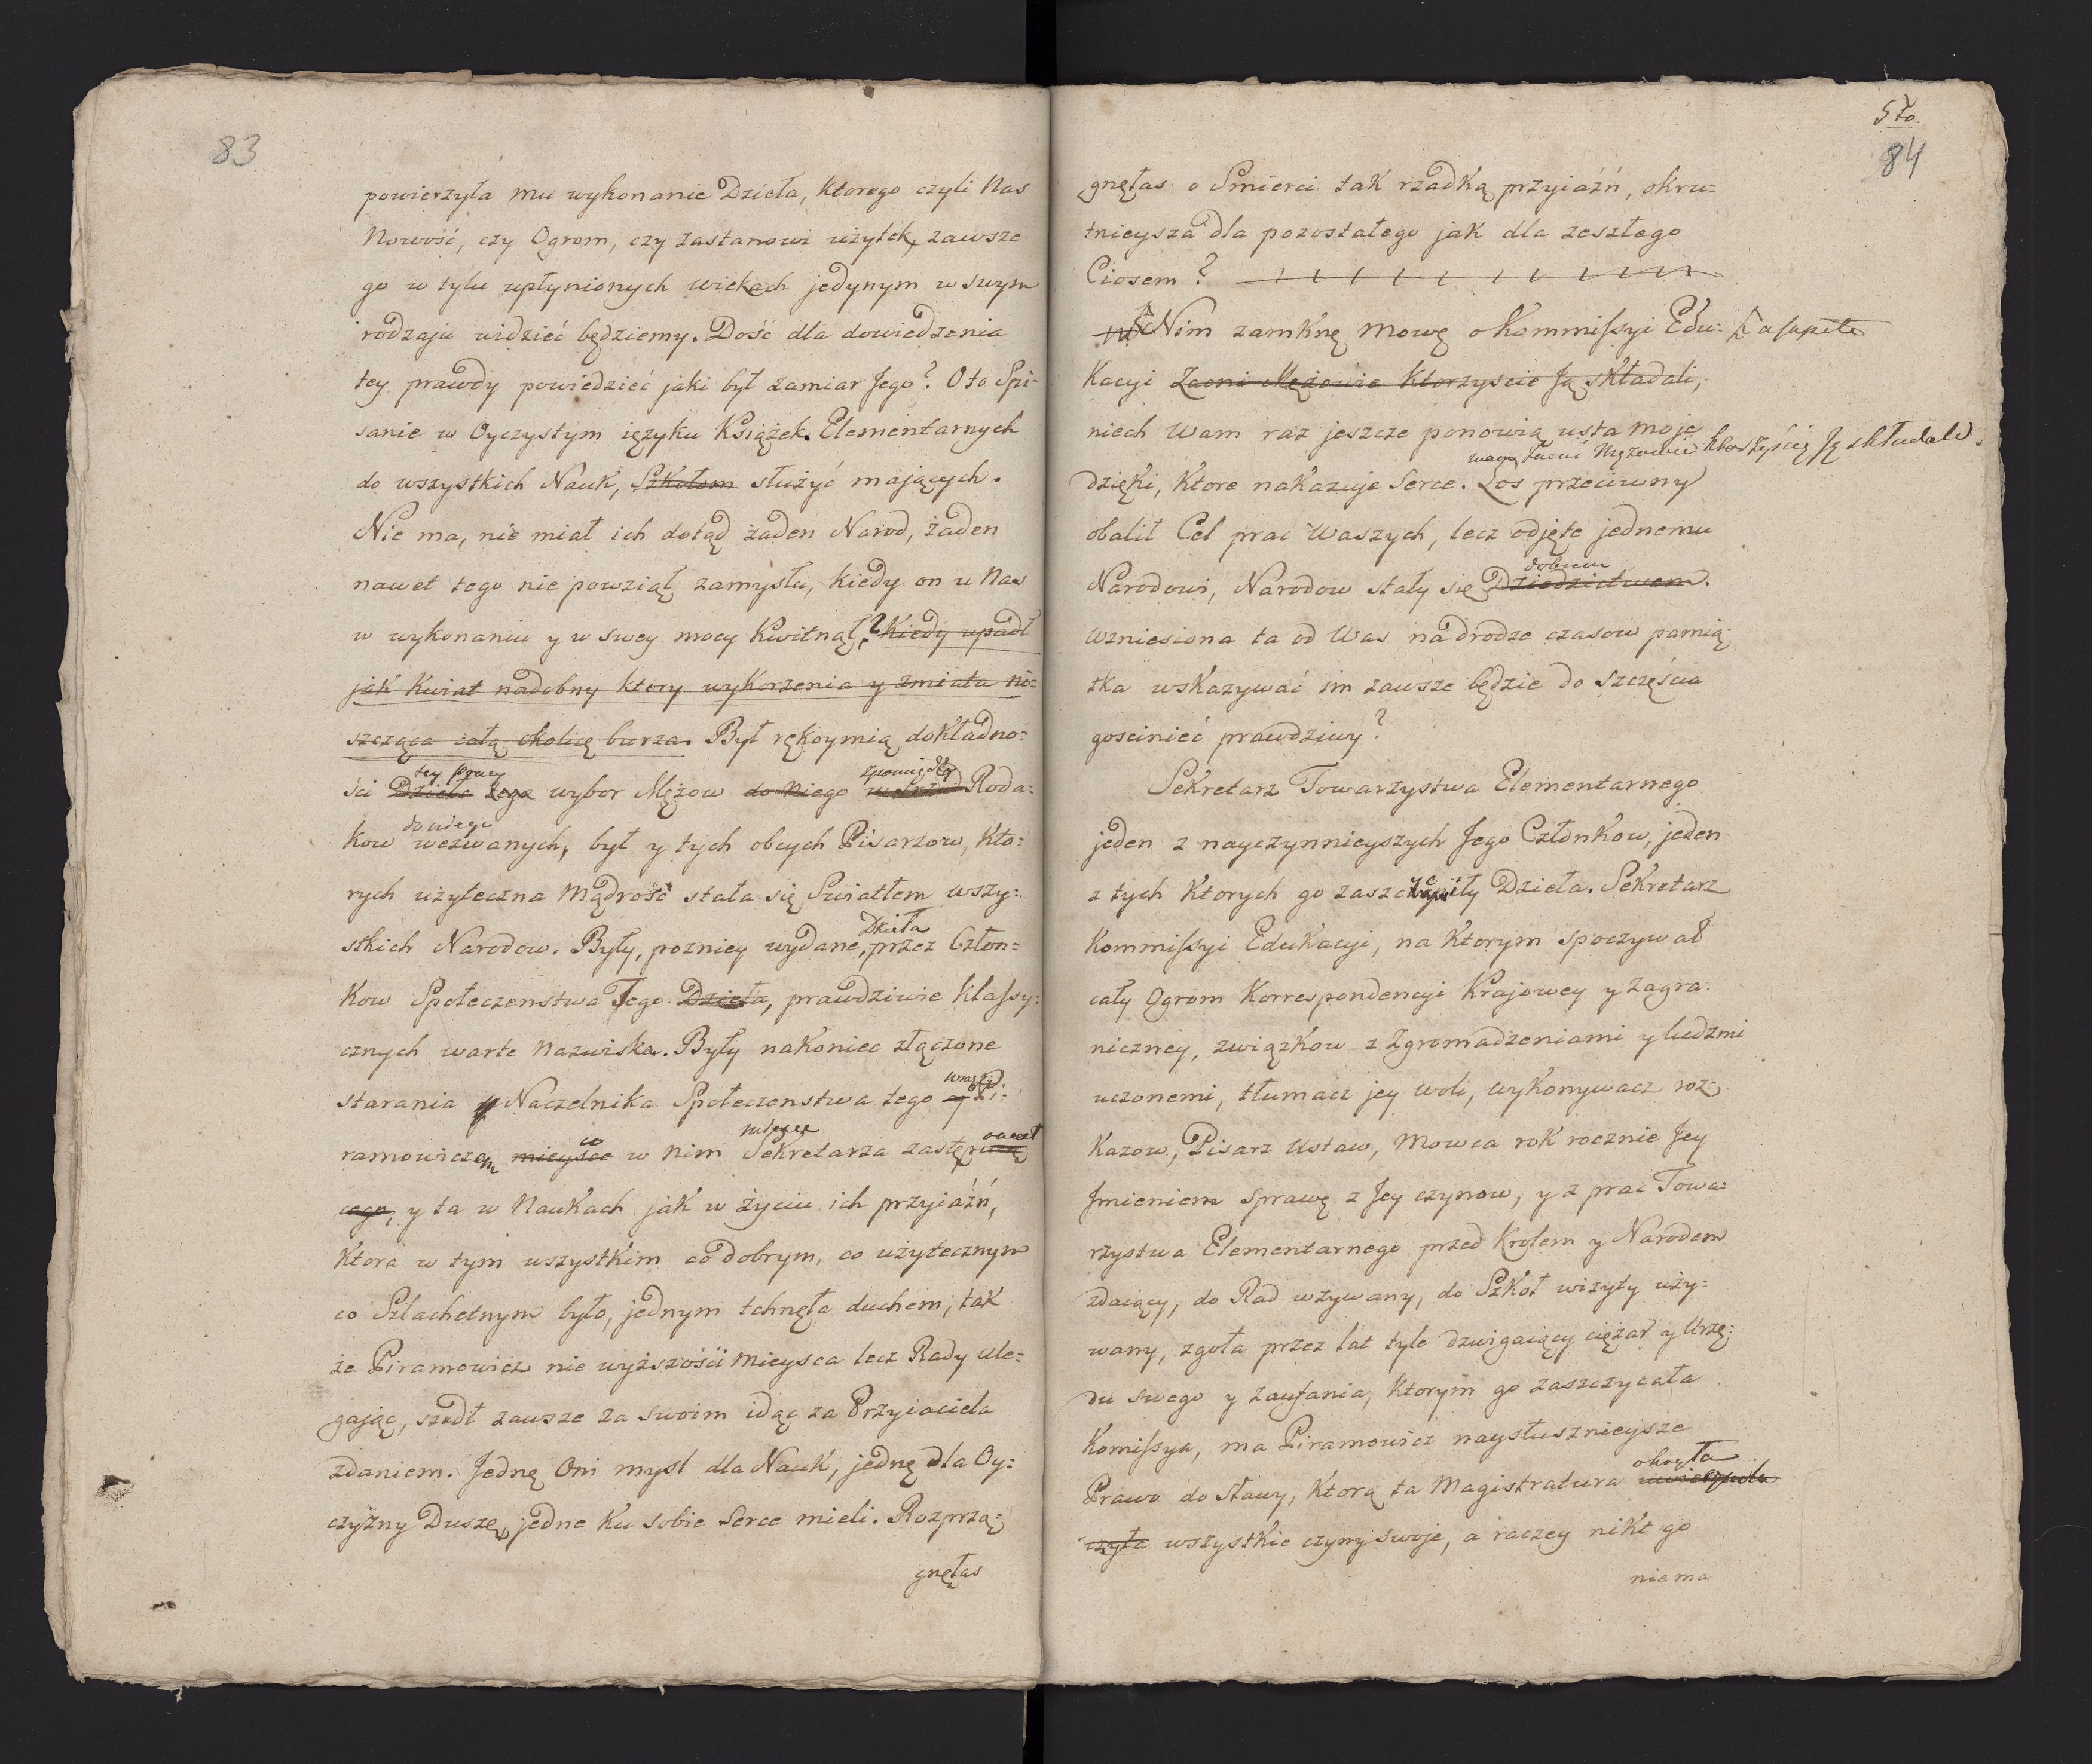 83
powierzyła mu wykonanie Dzieła, Ktorego czyli Nas
Nowość, czy Ogrom, czy zastanowi użytek, zawsze
go w tylu upłynionych wiekach jedynym w swym
rodzaju widzieć będziemy. Dość dla dowiedzenia
tey prawdy powiedzieć jaki był zamiar Jego? Oto Spi-
sanie w Oyczystym ięzyku Książek Elementarnych
do wszystkich Nauk, Szkołom służyć mających.
Nie ma, nie miał ich dotąd żaden Narod, żaden
nawet tego nie powziął zamysłu, Kiedy on u Nas
w wykonaniu y w swey mocy Kwitnął? Kiedy upadł
jak Kwiat nadobny Ktory wykorzenia y zmiata ni=
szcząca całą okolicę burza. Był rękoymią dokładno=
tey pracy
ści Dzieła tego wybor Mężow do Niego Roda=
do niego
kow wezwanych, był y tych obcych Pisarzow, Kto=
rych użyteczna Mądrość stała się Swiatłem wszy=
Dzieła
stkich Narodow. Były, pozniey wydane, przez Człon=
Kow Społeczenstwa Tego Dzieła, prawdziwie Klassy=
cznych warte Nazwiska. Były nakoniec złączone
starania Naczelnika Społeczenstwa tego y Pi=
ramowicza mieysce w nim Sekretarza
cego, y ta w Naukach jak w życiu ich przyiaźń,
Ktora w tym wszystkim co dobrym, co użytecznym
co Szlachetnym było, jednym tchnęła duchem; tak
że Piramowicz nie wyższości Mieysca lecz Rady ule=
gając, szedł zawsze za swoim idąc za Przyiaciela
zdaniem. Jednę Oni mysl dla Nauk, jednę dla Oy=
czyzny Duszę, jedne Ku sobie Serce mieli. Rozprzą=
gnęłas
5to.
84
gnęłas o Smierci tak rzadką przyiaźń, okru=
tnieysza dla pozostałego jak dla zeszłego
Ciosem?
Nim zamknę Mowę o Kommissyi Edu= a capite
Kacyi Zacni Mężowie Ktorzyscie Ją składali,
niech Wam raz jeszcze ponowią usta moje
Zacni Mężowie Ktorzyście Ją składali.
dzięki, Ktore nakazuje Serce. Los przeciwny
obalił Cel prac Waszych, lecz odjęte jednemu
dobrem
Narodowi, Narodow stały się Dziedzictwem.
Wzniesiona ta od Was na drodze czasow pamią=
tka wskazywać im zawsze będzie do szczęścia
gościniec prawdziwy?
Sekretarz Towarzystwa Elementarnego
jeden z nayczynnieyszych Jego Członkow, jeden
z tych Ktorych go zaszczyciły Dzieła. Sekretarz
Kommissyi Edukacyi, na Ktorym spoczywał
cały Ogrom Korrespondencyi Krajowey y Zagra=
niczney, związkow z Zgromadzeniami y ludzmi
uczonemi, tłumacz jey woli, wykonywacz roz=
Kazow, Pisarz Ustaw, Mowca rok rocznie Jey
Jmieniem sprawę z Jey czynow, y z prac Towa=
rzystwa Elementarnego przed Krolem y Narodem
zdaiący, do Rad wzywany, do Szkoł wizyty uży=
wany, zgoła przez lat tyle dzwigaiący ciężar y Urzę=
du swego y zaufania, Ktorym go zaszczycała
Komissya, ma Piramowicz naysłusznieysze
okryła
Prawo do sławy, Ktorą ta Magistratura
czyła wszystkie czyny swoje, a raczey nikt go
nie ma